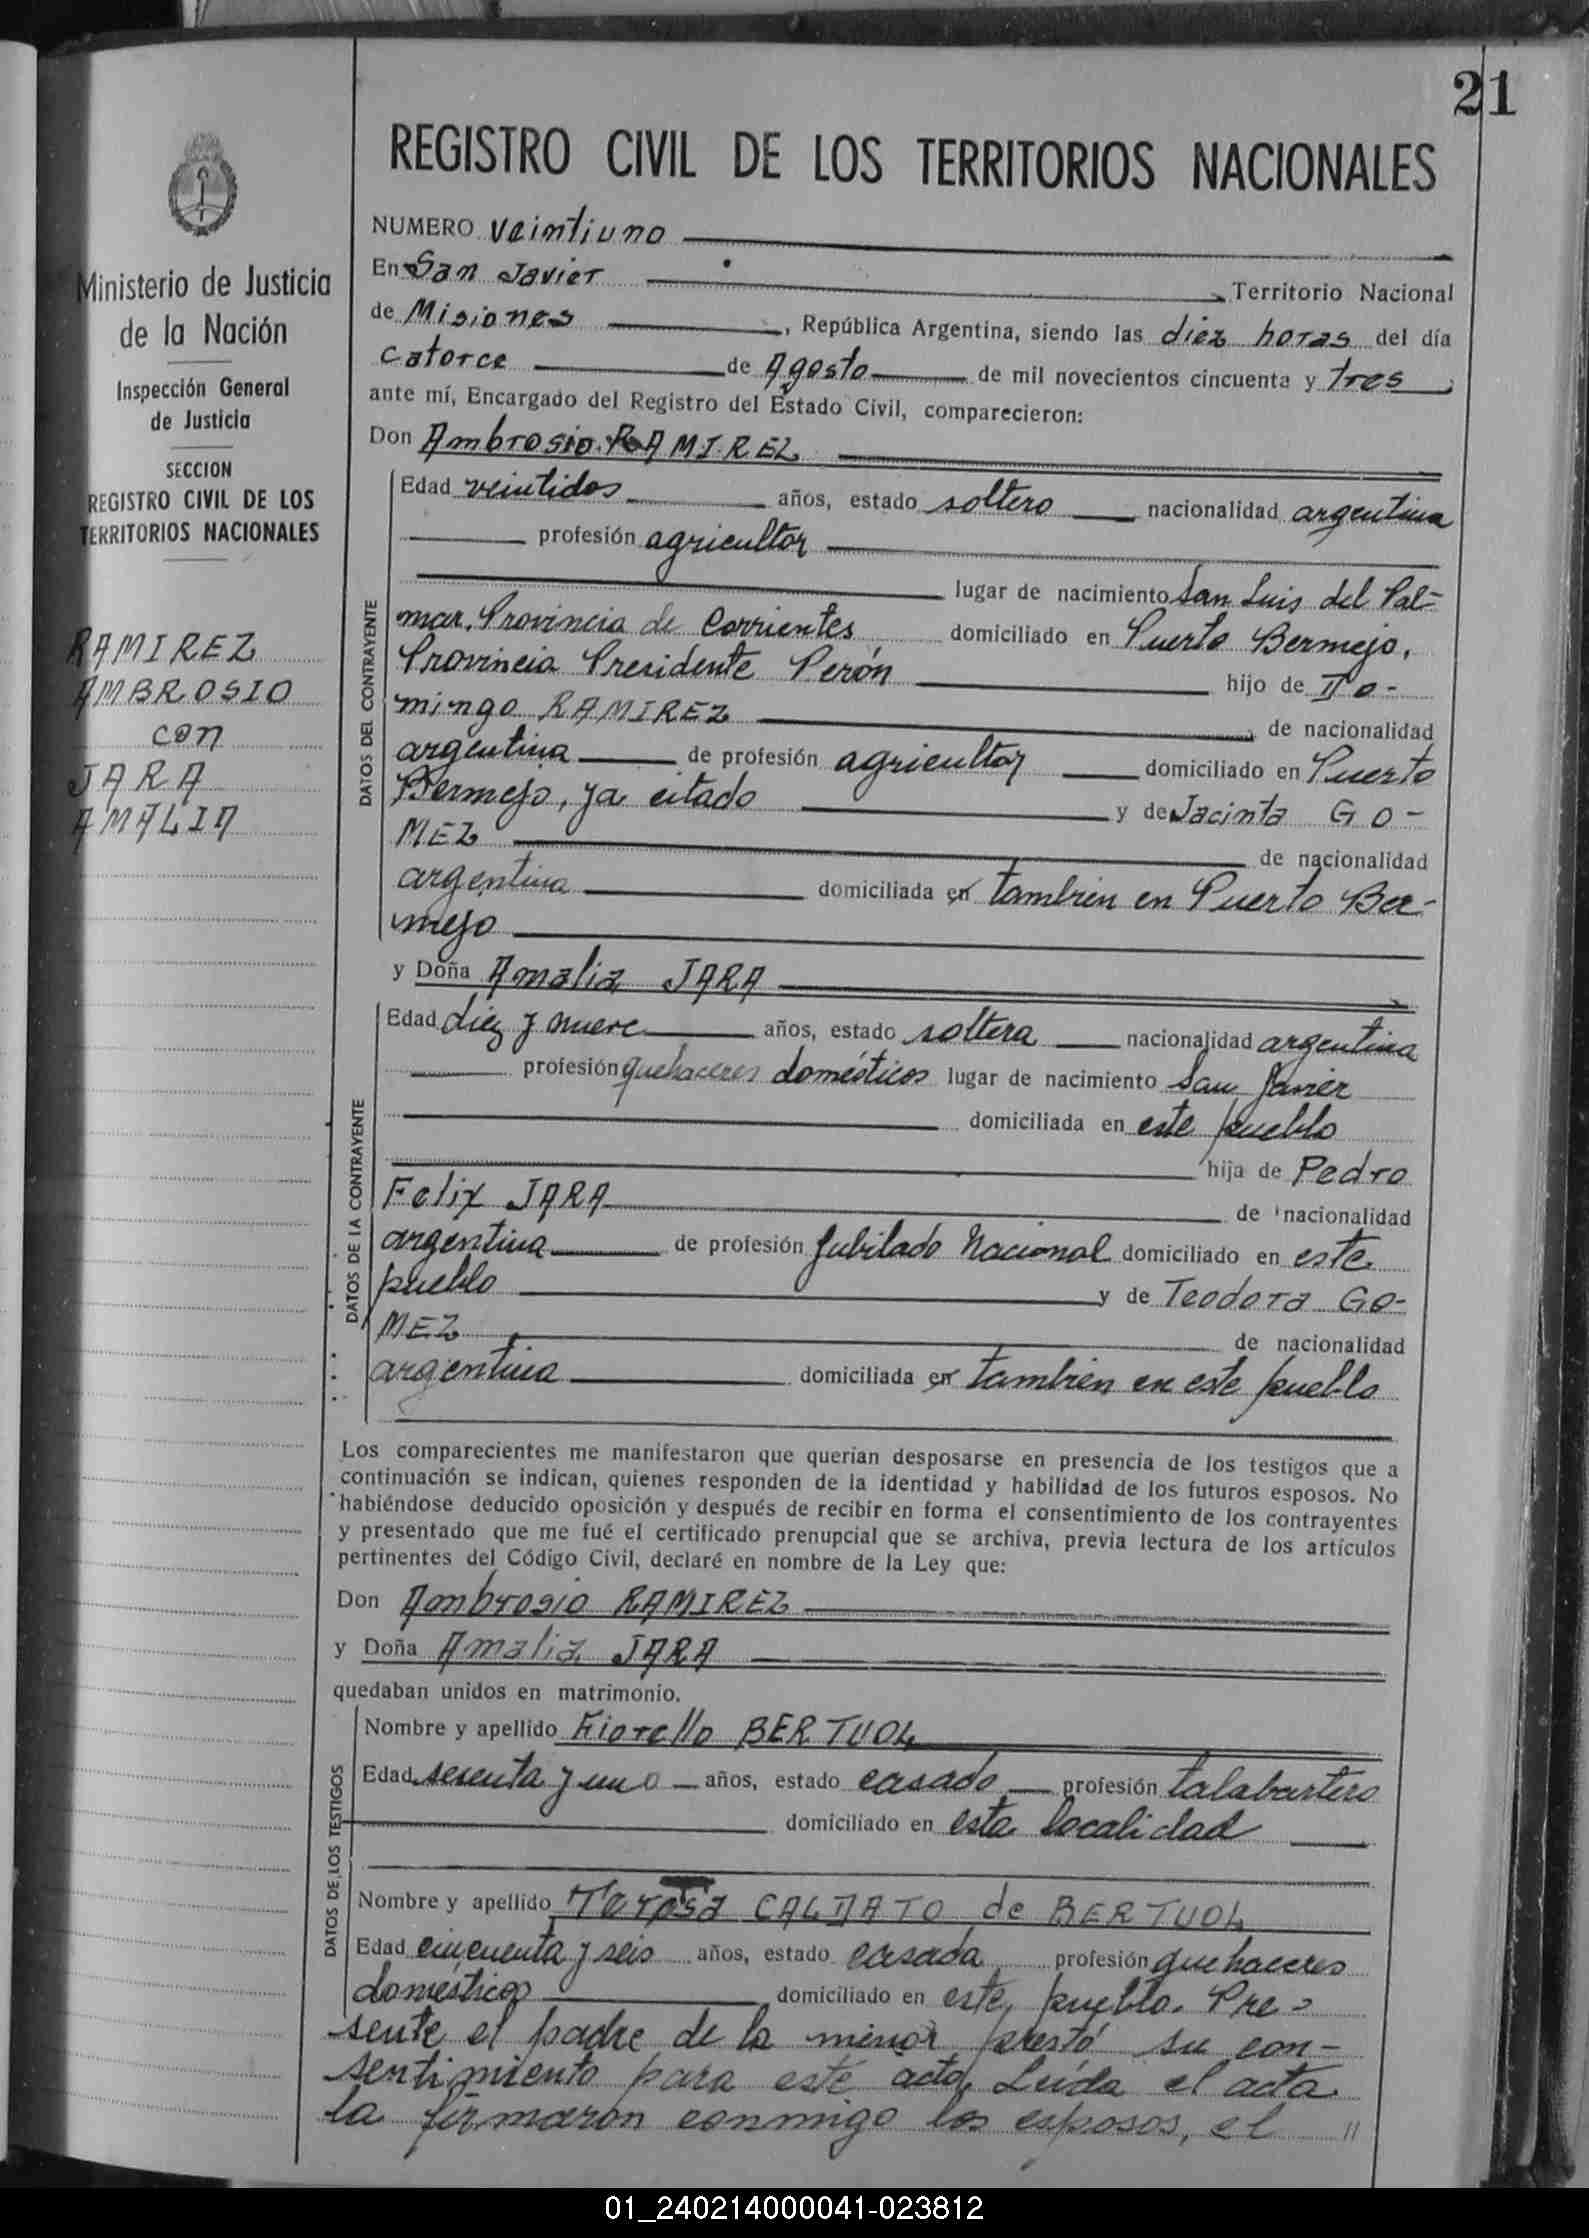 21
REGISTRO CIVIL DE LOS TERRITORIOS NACIONALES
Ministerio de Justicia
de la Nación
Inspección General
de Justicia
SECCION
REGISTRO CIVIL DE LOS
TERRITORIOS NACIONALES
RAMIREZ
AMBROSIO
con
JARA
AMALIA
NUMERO veintiuno
En San Javier Territorio Nacional
de Misiones, República Argentina, siendo las diez horas del día
catorce de Agosto de mil novecientos cincuenta y tres
ante mí, Encargado del Registro del Estado Civil, comparecieron:
Don Ambrosio RAMIREZ
DATOS DEL CONTRAYENTE
Edad veintidos años, estado soltero nacionalidad argentina
profesión agricultor
lugar de nacimiento San Luis del Pal-
mar, Provincia de Corrientes domiciliado en Puerto Bermejo,
Provincia Presidente Perón hijo de Do-
mingo RAMIREZ de nacionalidad
argentina de profesión agricultor domiciliado en Puerto
Bermejo, ya citado y de Jacinta GO-
MEZ de nacionalidad
argentina domiciliada en también en Puerto Ber-
mejo
y Doña Amalia JARA
DATOS DE LA CONTRAYENTE
Edad diez y nueve años, estado soltera nacionalidad argentina
profesión quehaceres domésticos lugar de nacimiento San Javier
domiciliada en este pueblo
hija de Pedro
Felix JARA de nacionalidad
argentina de profesión Jubilado Nacional domiciliado en este
pueblo y de Teodora GO-
MEZ de nacionalidad
argentina domiciliada en también en este pueblo
Los comparecientes me manifestaron que querían desposarse en presencia de los testigos que a
continuación se indican, quienes responden de la identidad y habilidad de los futuros esposos. No
habiéndose deducido oposición y después de recibir en forma el consentimiento de los contrayentes
y presentado que me fué el certificado prenupcial que se archiva, previa lectura de los artículos
pertinentes del Código Civil, declaré en nombre de la Ley que:
Don Ambrosio RAMIREZ
y Doña Amalia JARA
quedaban unidos en matrimonio.
DATOS DE LOS TESTIGOS
Nombre y apellido Fiorello BERTUOL
Edad sesenta y uno años, estado casado profesión talabartero
domiciliado en esta localidad
Nombre y apellido Teresa CALDATO de BERTUOL
Edad cincuenta y seis años, estado casada profesión quehaceres
domésticos domiciliado en este pueblo. Pre-
sente el padre de la menor prestó su con-
sentimiento para este acto. Leída el acta
la firmaron conmigo los esposos, el //
01_240214000041-023812